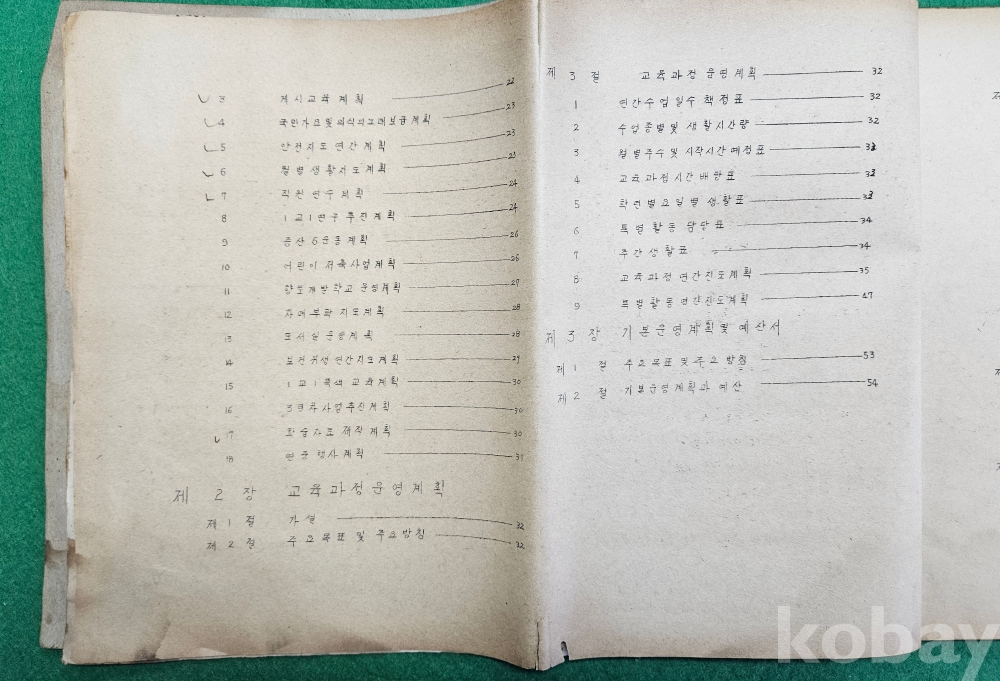 3 게시교육 계획 22
4 국민가요및의식의노래보급계획 23
5 안전지도 연간 계획 23
6 월별 생활지도 계획 23
7 직원 연수 계획 24
8 1교 1연구 추진계획 24
9 증산 6운동계획 26
10 어린이 저축사업계획 26
11 향토개발학교 운영계획 27
12 자매부락 지도계획 28
13 도서실 운영계획 28
14 보건위생 연간지도계획 29
15 1교 1특색 교육계획 30
16 3개년차사업추진계획 30
17 학습자료 제작 계획 30
18 연중 행사계획 31
제 2 장 교육과정운영계획
제 1 절 가설 32
제 2 절 주요목표 및 주요방침 32
제 3 절 교육과정 운영계획 32
1 연간수업일수 책정표 32
2 수업종별및 생활시간량 32
3 월별주수 및 시작시간 예정표 33
4 교육과정시간 배당표 33
5 학년별요일별 생활표 33
6 특별활동 담당표 34
7 주간생활표 34
8 교육과정 연간진도계획 35
9 특별활동 연간진도계획 47
제 3 장 기본운영계획및 예산서
제 1 절 주요목표 및 주요 방침 53
제 2 절 기본운영계획과 예산 54
kobay